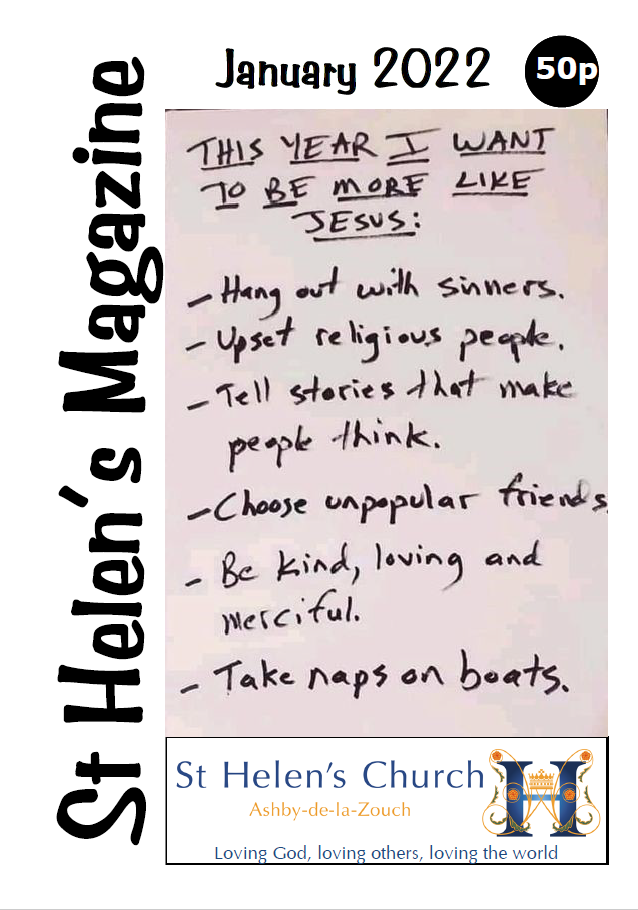 January 2022
50p
St Helen's Magazine
THIS YEAR I WANT
TO BE MORE LIKE
JESUS:
- Hang out with sinners.
- Upset religious people.
- Tell stories that make
people think.
- Choose unpopular friends
- Be kind, loving and
merciful.
- Take naps on boats.
St Helen's Church
Ashby-de-la-Zouch
H
Loving God, loving others, loving the world